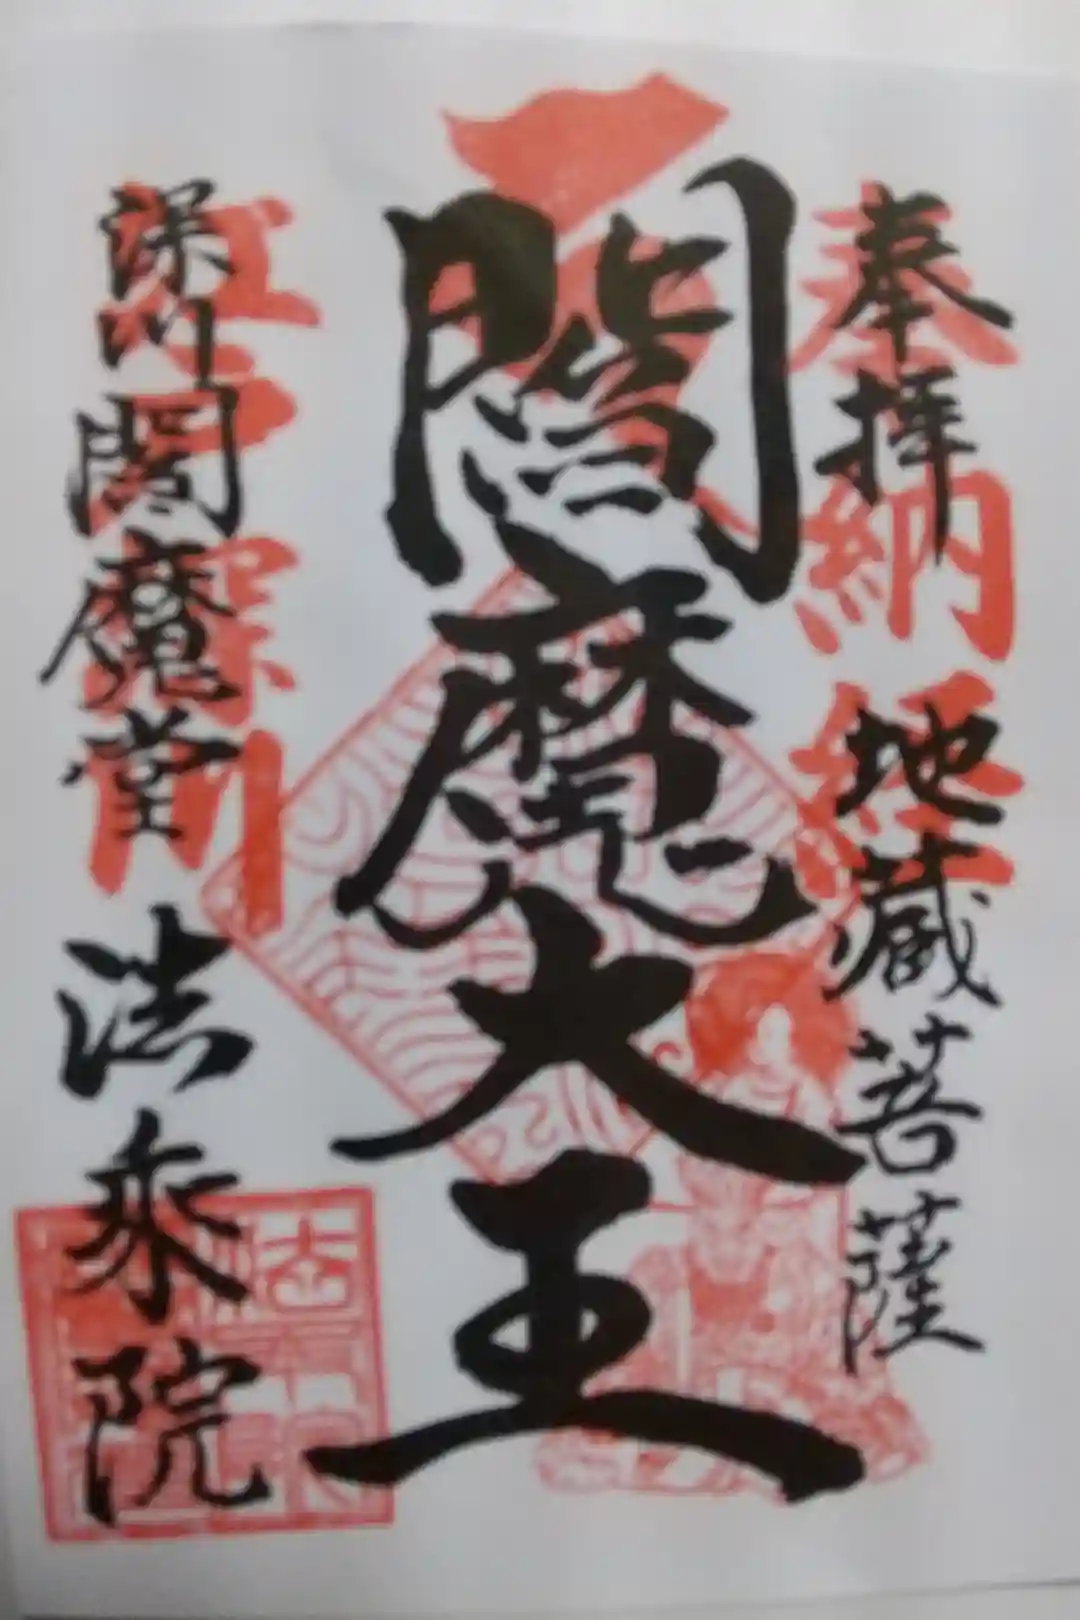 奉拝 地蔵菩薩
奉納経
閻魔大王
深川閻魔堂 法乗院
江戸深川